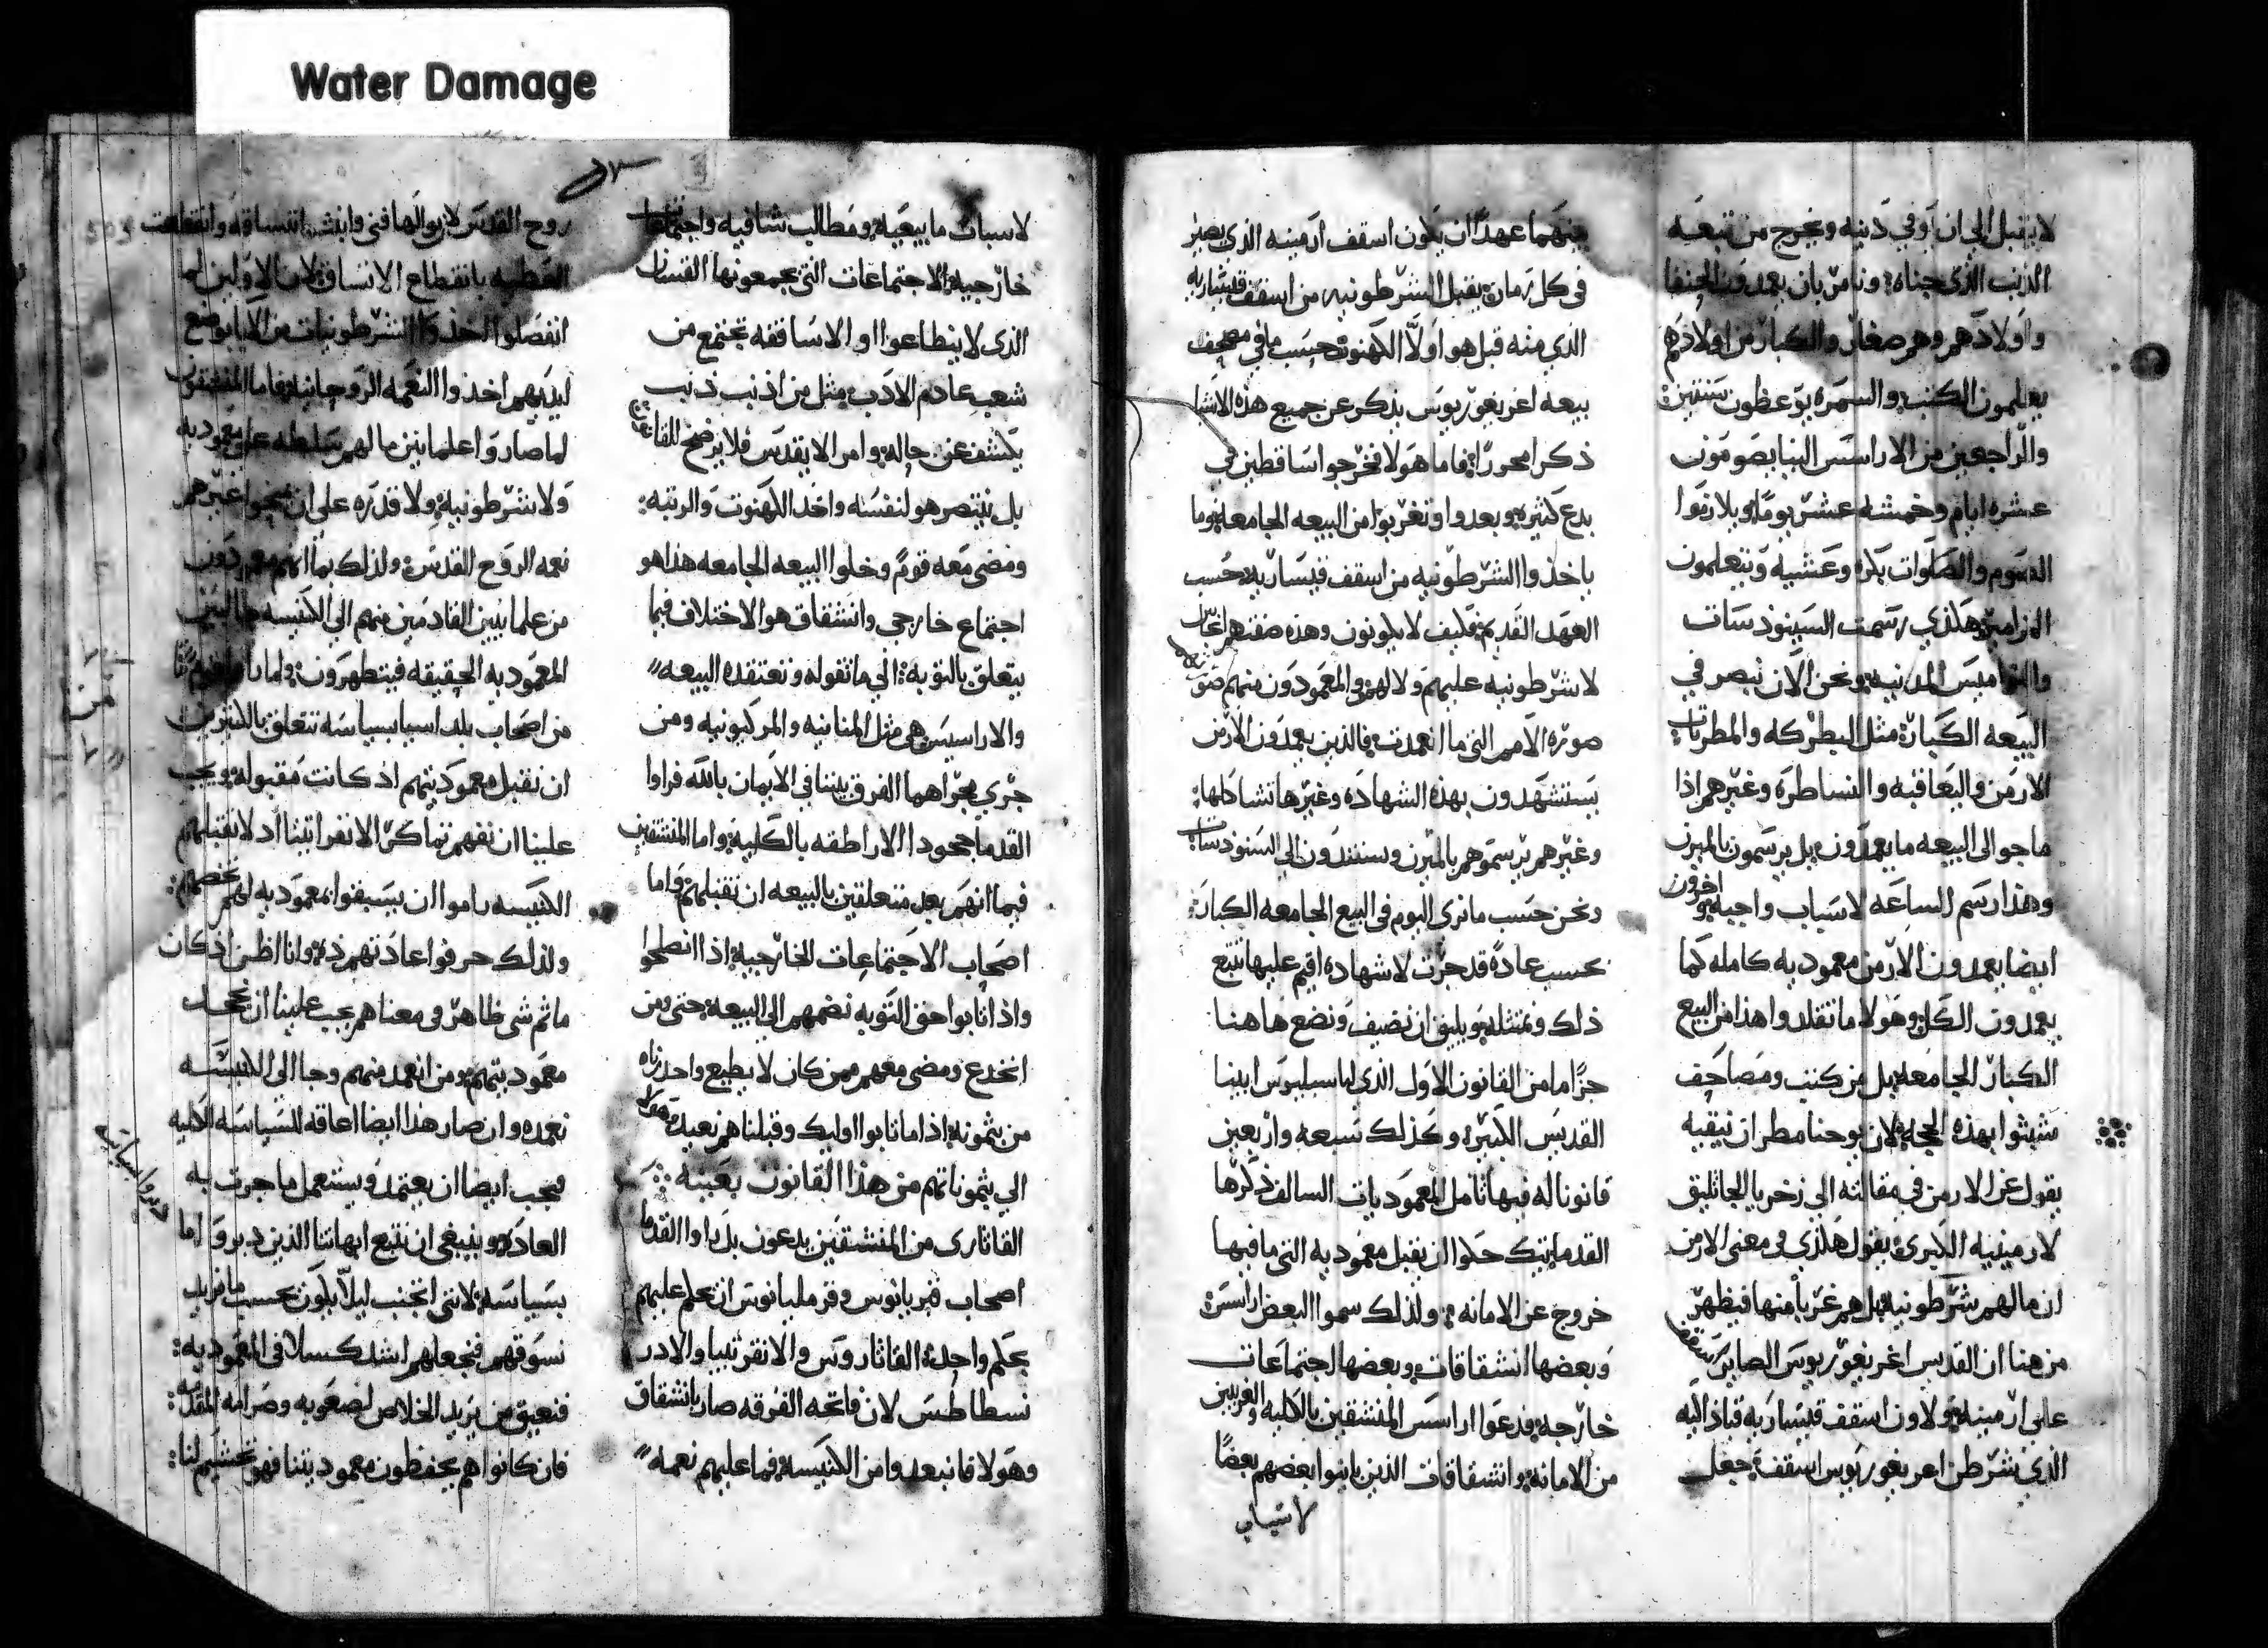 Water Damage
لا يقبل الى ان اوفي دنيه ويخرج من تبعه
الذنب الذي جناه ونامر بان يعمدون الحنفا
واولادهم وهم صغار والكبار من اولادهم
يعلمون الكتب والسمره يوعظون سنتين
والراجعين من الاراسس الينا يصومون
عشره ايام وخمسه عشر يوما ويلازموا
الصوم والصلوات بكره وعشيه ويتعلمون
المزامير هكذي رسمت السينودسات
والنواميس المدنيه ونحن الان نبصر في
البيعه الكبار مثل البطركه والمطرنات
الارمن واليعاقبه والنساطره وغيرهم اذا
ما جوا الى البيعه ما يعمدون بل يرسمون بالميرن
وهذا رسم الساعه لاسباب واجبه واخرون
ايضا يعمدون الارمن معموديه كامله كما
يعمدون الكل وهولا ما تقلدوا هذا من البيع
الكبار الجامعه بل من كتب ومصاحف
تثبتوا بهذه الحجه لان يوحنا مطران نيقيه
يقول عن الارمن في مقالته الى زخريا الجاثليق
لارمينيه الكبرى يقول هكذي في معنى الارمن
ان مالهم شرطونيه بل هم غربا منها فيظهر
من هنا ان القديس اغريغوريوس الصاير اسقف
على ارمينيه ولاون اسقف قيساريه قباذاقيه
الذي شرطن اغريغوريوس اسقف جعل
بينهما عهدا ان يكون اسقف ارمينه الذي يصير
في كل زمان يقبل الشرطونيه من اسقف قيساريه
الذي منه قبل هو اولا الكهنوت حسب ما في مصحف
بيعه اغريغوريوس يذكر عن جميع هذه الاشيا
ذكرا محررا فاما هولا فخرجوا ساقطين في
بدع كثيره وبعدوا وتغربوا من البيعه الجامعه وما
ياخذوا الشرطونيه من اسقف قيساريه حسب
العهد القديم فكيف لا يكونون وهذه صفتهم اغراب
لا شرطونيه عليهم ولا لهم والمعمودون منهم
صوره الامم التي ما انعمدت فالذين يعمدون الارمن
يستشهدون بهذه الشهاده وغيرها تشاكلها
وغيرهم يرسموهم بالميرن ويستندون الى السنودسات
ونحن حسب ما نرى اليوم في البيع الجامعه الكبار
بحسب عادة قد جرت لاشهاده اقيم عليها نتبع
ذلك ونمتثله ويليق ان نضيف ونضع هاهنا
جزا ما من القانون الاول الذي لباسيليوس ابينا
القديس الكبير وكذلك تسعه واربعين
قانونا له فيها تامل المعموديات السالف ذكرها
القدما بتيك حكموا ان يقبل معموديه التي ما فيها
خروج عن الامانه ولذلك سموا البعض اراسس
وبعضها انشقاقات وبعضها اجتماعات
خارجه فدعوا اراسس المنشقين بالكليه والغريبين
من الامانه وانشقاقات الذين باينوا بعضهم بعضا
لاسباب
لاسباب ما بيعيه ومطالب شافيه واجتماعات
خارجيه الاجتماعات التي يجمعونها القسان
الذي لا يطاعوا او الاساقفه تجتمع من
شعب عادم الادب مثل من اذنب ذنب
يكشف عن حاله وامر الا يقدس فلا يرضخ للقانون
بل ينتصر هو لنفسه واخذ الكهنوت والرتبه
ومضى معه قوم وخلوا البيعه الجامعه هذا هو
اجتماع خارجي وانشقاق هو الاختلاف فيما
يتعلق بالتوبه الي ما تقوله وتعتقده البيعه
والاراسيس هي مثل المنانيه والمركيونيه ومن
جري مجراهما الفرق بيننا في الايمان بالله فراوا
القدما جحود الاراطقه بالكليه واما المنشقين
فبما انهم بعد متعلقين بالبيعه ان تقبلهم واما
اصحاب الاجتماعات الخارجيه اذا انصلحوا
واذا تابوا حق التوبه نضمهم الى البيعه حتى ومن
انخدع ومضى معهم ممن كان لا يطيع واحد زناه
من يثمونه اذا ما تابوا اوليك وقبلناهم نعيد وهولا
الي يثموناتهم من هذا القانون بعينه
القاثارى من المنشقين يدعون بل راوا القدما
اصحاب قبريانوس وفرمليانوس ان يحكم عليهم
بحكم واحد القاثاروس والانقرتيا والادر
نسطاطس لان فاتحه الفرقه صار بانشقاق
وهولا فانبعدوا من الكنيسه فما عليهم نعمه
روح القدس لانزوالها فني وانبث انتساقه وانقطعت
العطيه بانقطاع الانساق لان الاولين لما
انفصلوا اخذوا الشرطونيات من الابا بوضع
ايديهم اخذوا النعمه الروحانيه فاما المنشقون
لما صاروا علمانيين مالهم سلطه على معموديه
ولا شرطونيه ولا قدره على ان يمنحوا غيرهم
نعمه الروح القدس ولذلك بما انهم معمودون
من علمانيين القادمين منهم الى الكنيسه طالبين
المعموديه الحقيقه فيتطهرون
من اصحاب بلد اسيا بسياسه تتعلق بالكثيرين
ان نقبل معموديتهم اذ كانت مقبوله ويجب
علينا ان نفهم تماكر الانقراتيتا اد لا نقبلهم
الكنيسه راموا ان يسبقوا بمعموديه لهم تخصهم
ولذلك حرفوا عادتهم وانا اظن اذ كان
ما ثم شي ظاهر في معناهم يجب علينا ان نجحد
معموديتهم ومن انعمد منهم وجا الى الكنيسه
نعمده وان صار هذا ايضا اعاقه للسياسه الكليه
فيجب ايضا ان يعتمد ويستعمل ما جرت به
العاده وينبغي ان نتبع ابهاتنا الذين دبروا ما
بسياسه لانني اتجنب ليلا يكون بحسب ما نريد
نسوقهم فنجعلهم اشد كسلا في المعموديه
فنعيق من يريد الخلاص لصعوبه وصرامه المقدمه
فان كانوا هم يحفظون معموديتنا فهو تحشيم لنا